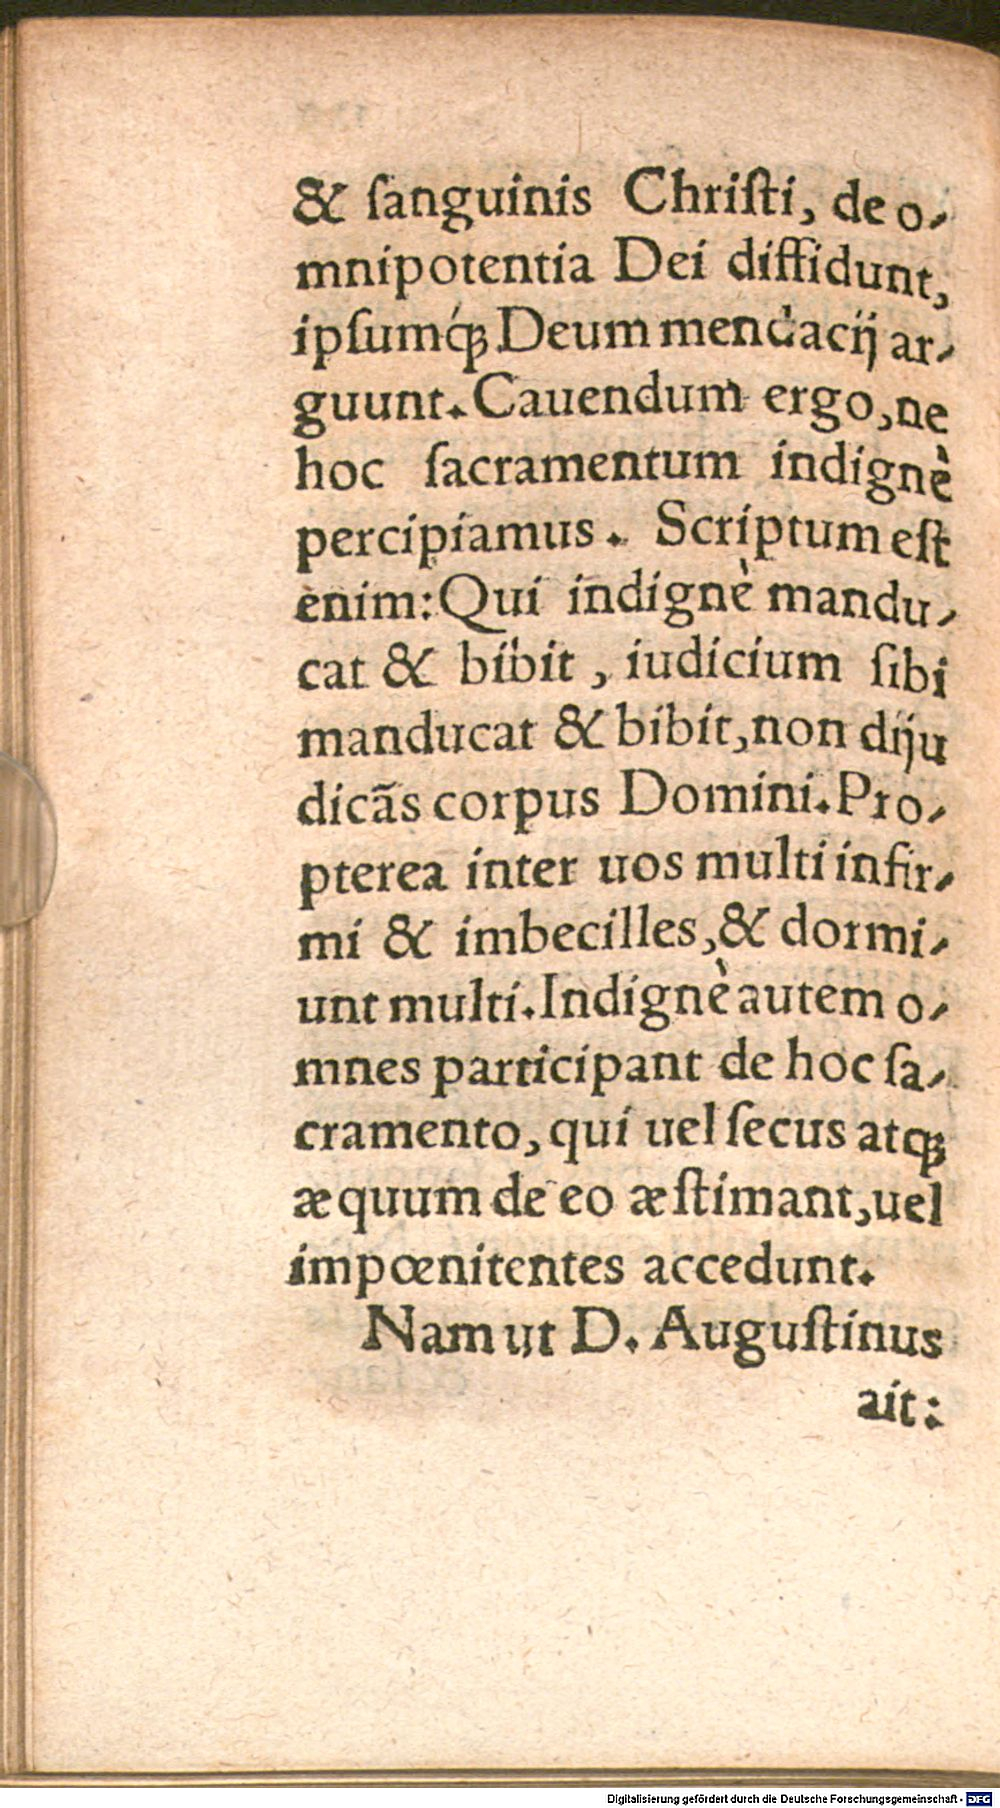 & ſanguinis Chriſti, de o-
mnipotentia Dei diffidunt,
ipſumq́ꝫ Deum mendacij ar-
guunt. Cauendum ergo, ne
hoc ſacramentum indignè
percipiamus. Scriptum eſt
enim: Qui indignè mandu-
cat & bibit, iudicium ſibi
manducat & bibit, non diju
dicãs corpus Domini. Pro-
pterea inter uos multi infir-
mi & imbecilles, & dormi-
unt multi. Indignè autem o-
mnes participant de hoc ſa-
cramento, qui uel ſecus atqꝫ
æquum de eo æſtimant, uel
impœnitentes accedunt.
Nam ut D. Auguſtinus
ait:
Digitalisierung gefördert durch die Deutsche Forschungsgemeinschaft - DFG